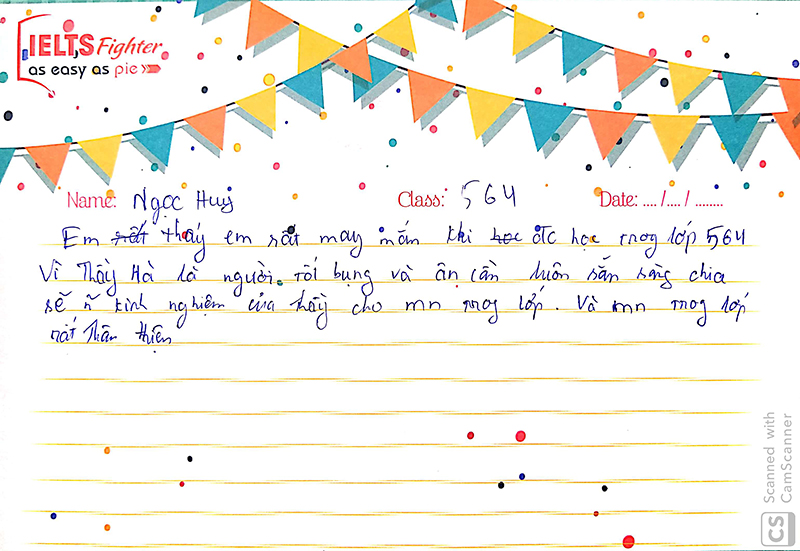 IELTS Fighter
as easy as pie
Name: Ngọc Huy Class: 564 Date: .... /.... / ........
Em rất thấy em rất may mắn khi học đc học trog lớp 564
Vì Thầy Hà là người tốt bụng và ân cần luôn sẵn sàng chia
sẽ n~ kinh nghiệm của thầy cho mn trog lớp. Và mn trog lớp
rất thân thiện
Scanned with
CamScanner
CS